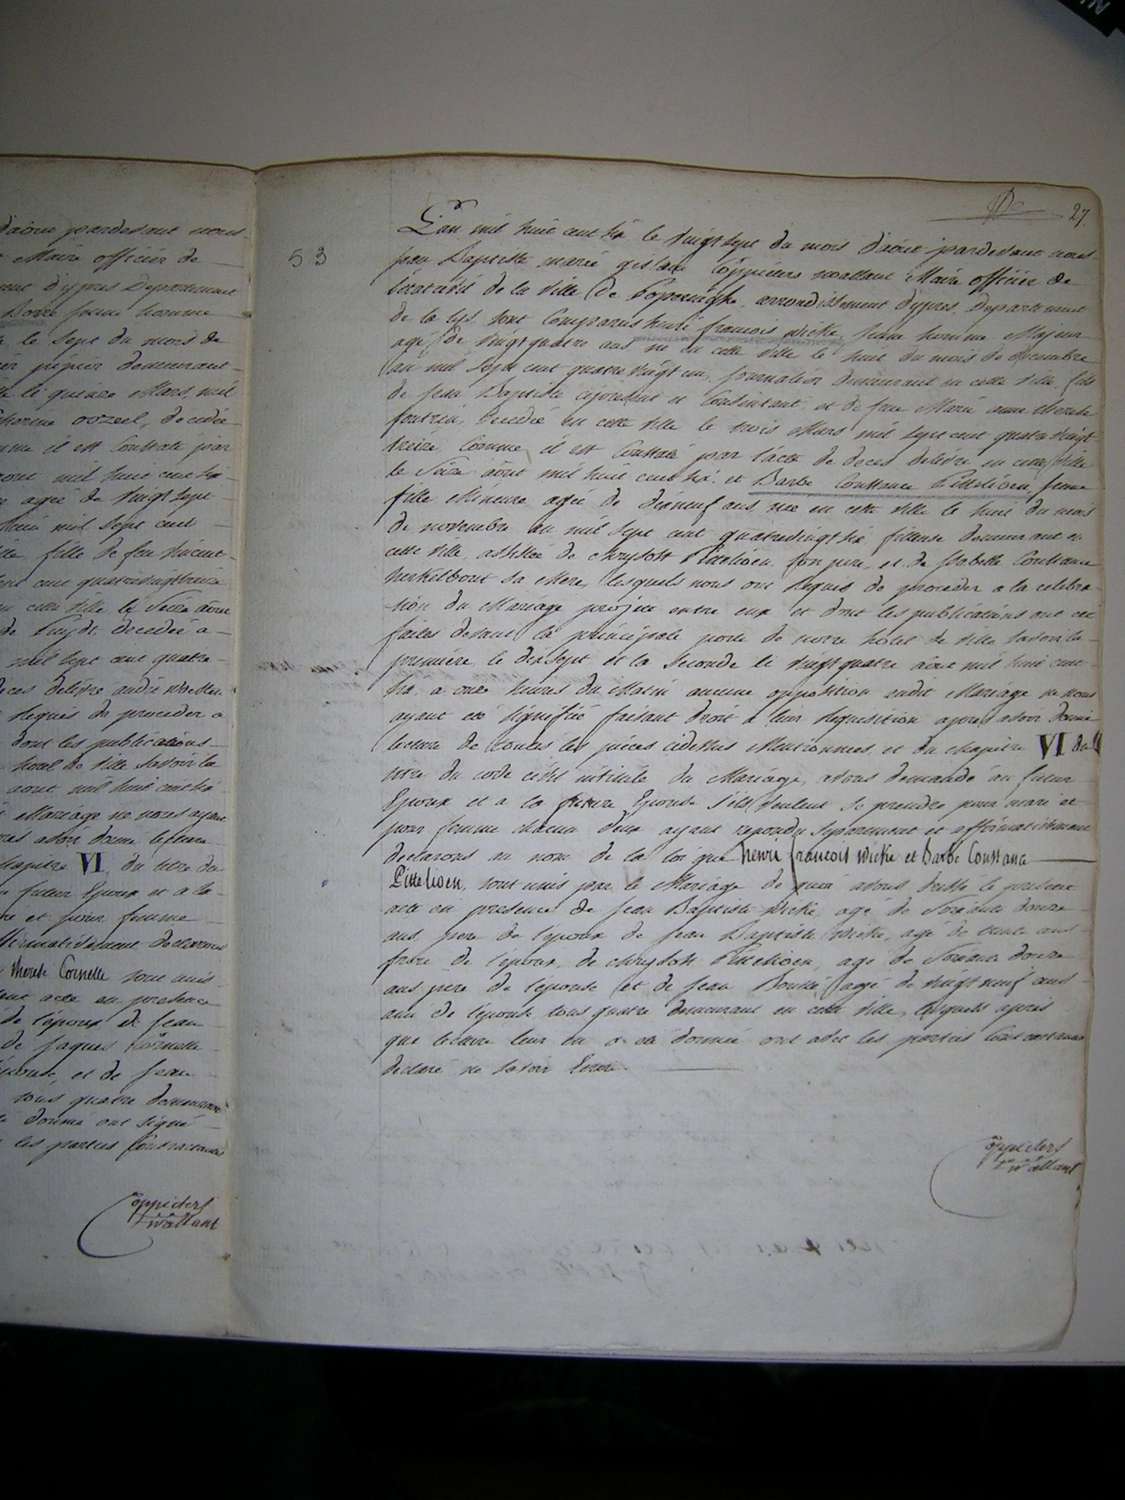 d'aout pardevant nous
Maire officier de
d'ypres Departement
jeune homme
le sept du mois de
demeurant
le quinze Mars mil
decedée
comme il est Constaté par
aout mil huit cent six
agée de vingt sept
mil sept cent
fille de feu vincent
cent quatrevingt treize
cette ville le Seize aout
decedée a
mil sept cent quatre
deces delivré
requis de proceder a
dont les publications
hotel de ville savoir la
aout mil huit cent six
Mariage ne nous ayant
avoir donné lecture
chapitre VI du titre du
futur Epoux et a la
et pour femme
affirmativement declarons
Cornelle sont unis
acte en presence
de l'epoux de Jean
de Jaques Cornelle
et de Jean
tous quatre demeurant
donné ont signé
les parties Contractantes
Coppieters
Wallant
27
53
L'an mil huit cent six le vingt sept du mois d'aout pardevant nous
jean Baptiste marie gislain Coppieters wallant Maire officier de
l'etat civil de la ville de Poperinghe arrondissement d'ypres Departement
de la Lys sont Comparus henri francois wicke jeune homme Majeur
agé de vingt quatre ans né en cette ville le huit du mois de decembre
an mil sept cent quatre vingt un, journalier demeurant en cette ville, fils
de jean Baptiste cipresent et Consentant, et de feue Marie anne therese
decedée en cette ville le trois Mars mil sept cent quatre vingt
treize Comme il est Constaté par l'acte de deces delivré en cette ville
le Seize aout mil huit cent six, et Barbe Constance Pittelioen, jeune
fille Mineure agée de dixneuf ans née en cette ville le huit du mois
de novembre an mil sept cent quatrevingt six fileuse demeurant en
cette ville, assistée de Chrysost Pittelioen son pere, et de Isabelle Constance
sa Mere, lesquels nous ont Requis de proceder a la celebra-
tion du Mariage projetté entre eux et dont les publications ont été
faites devant la principale porte de notre hotel de ville savoir la
premiere le dix sept et la Seconde le vingt quatre aout mil huit cent
six a onze heures du Matin aucune opposition audit Mariage ne nous
ayant été signifiée faisant droit a leur Requisition apres avoir donné
lecture de toutes les pieces cidessus Mentionnées, et du chapitre VI du
titre du code civil intitulé du Mariage, avons demandé au futur
Epoux et a la future Epouse s'ils veulent se prendre pour mari et
pour femme chacun d'eux ayant repondu separement et affirmativement
declarons au nom de la loi que henri francois wicke et Barbe Constance
Pittelioen, sont unis par le Mariage de quoi avons dressé le present
acte en presence de Jean Baptiste wicke agé de Soixante douze
ans, pere de l'epoux de Jean Baptiste wicke, agé de trente ans
frere de l'epoux, de Chrysost Pittelioen, agé de Soixante douze
ans pere de l'epouse et de Jean agé de vingt neuf ans
ami de l'epouse tous quatre demeurant en cette ville, lesquels apres
que lecture leur en a été donnée ont avec les parties Contractantes
declaré ne savoir Ecrire
Coppieters
Wallant